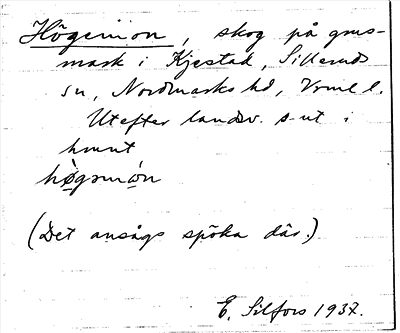 Högemon, skog på grus-
mark i Kjestad, Sillerud
sn, Nordmarks hd, Vrml l.
Utefter landsv. s-ut i
hmnt
høgǝmòn
(Det ansågs spöka där.)
E. Silfors 1937.